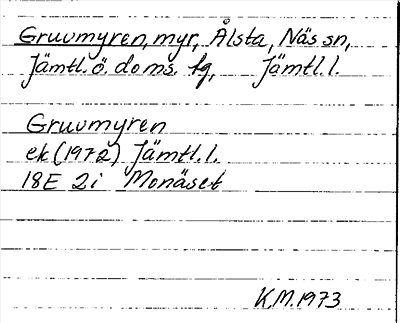 Gruvmyren, myr, Ålsta, Näs sn,
Jämtl. ö. doms. fg, Jämtl. l.
Gruvmyren
ek (1972) Jämtl. l.
18E 2i Monäset
K.M. 1973